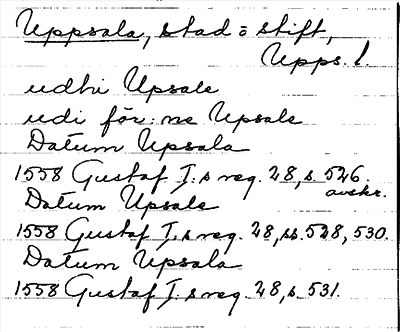 Uppsala, stad = stift,
Upps. l.
udhi Upsale
udi för:ne Upsale
Datum Upsala
1558 Gustaf I:s reg. 28, s. 526.
avskr.
Datum Upsale
1558 Gustaf I:s reg. 28, ss. 528, 530.
Datum Upsala
1558 Gustaf I:s reg. 28, s. 531.